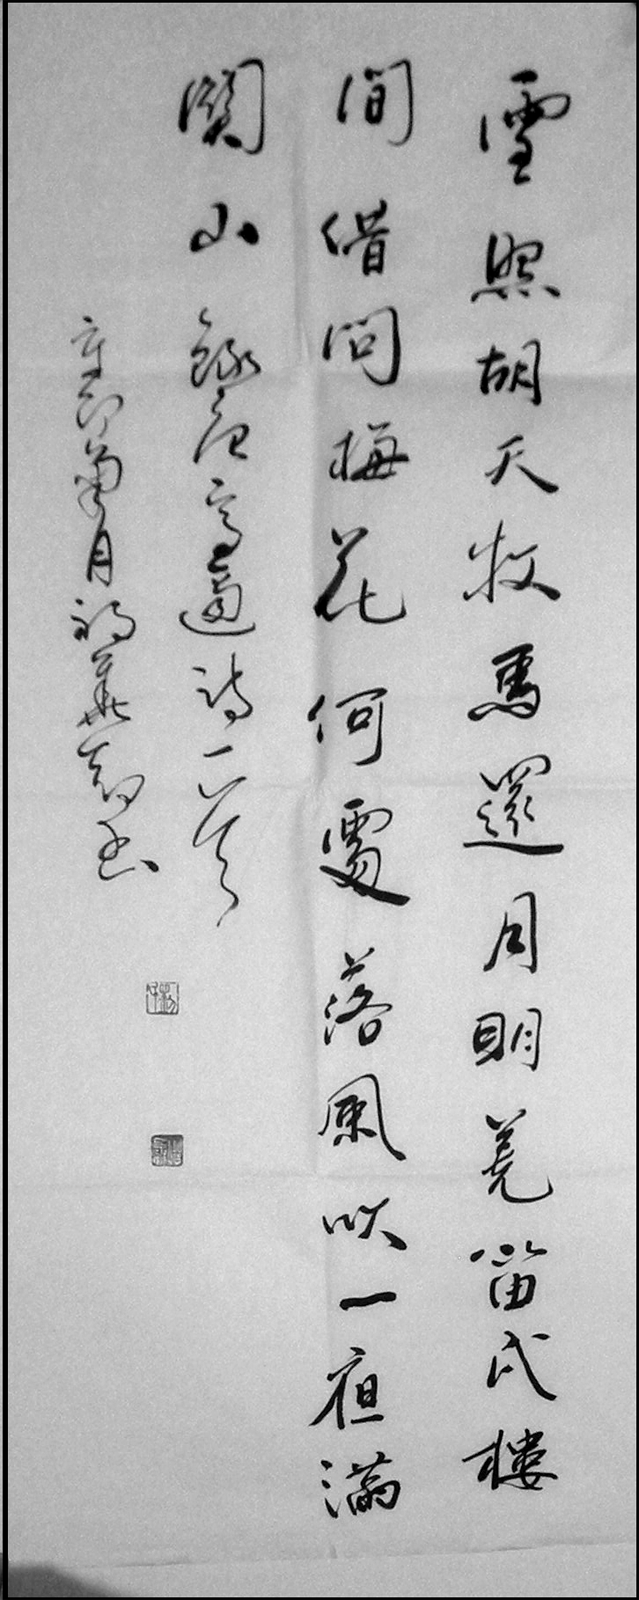 雪照胡天牧馬還月明羌笛戍樓
間借問梅花何處落風吹一夜滿
關山 錄唐高適詩一首
辛卯菊月書